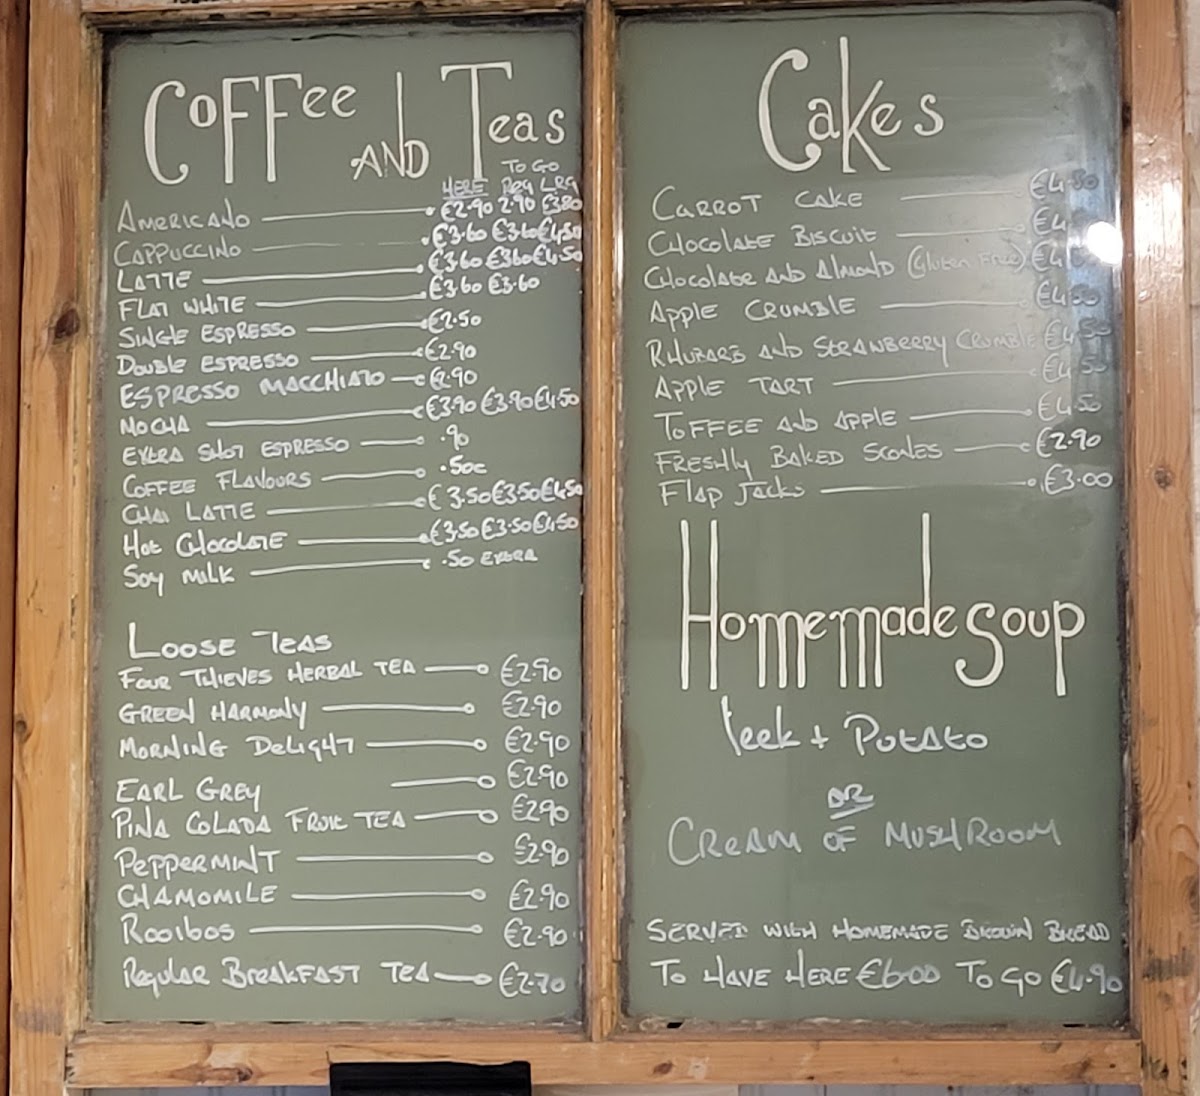 Coffee AND Teas
TO GO
HERE Reg LRG
AMERICANO €2.90 2.90 €3.80
CAPPUCCINO €3.60 €3.60 €4.50
LATTE €3.60 €3.60 €4.50
FLAT WHITE €3.60 €3.60
SINGLE ESPRESSO €2.50
DOUBLE ESPRESSO €2.90
ESPRESSO MACCHIATO €2.90
MOCHA €3.90 €3.90 €4.50
EXTRA SHOT ESPRESSO .90
COFFEE FLAVOURS .50c
CHAI LATTE €3.50 €3.50 €4.50
Hot Chocolate €3.50 €3.50 €4.50
Soy Milk .50 EXTRA
Loose Teas
FOUR THIEVES HERBAL TEA €2.90
GREEN HARMONY €2.90
MORNING DELIGHT €2.90
EARL GREY €2.90
PINA COLADA FRUIT TEA €2.90
PEPPERMINT €2.90
CHAMOMILE €2.90
Rooibos €2.90
Regular BREAKFAST TEA €2.70
Cakes
CARROT CAKE €4.50
CHOCOLATE BISCUIT
CHOCOLATE AND ALMOND (Gluten Free)
APPLE CRUMBLE €4.50
RHUBARB AND STRAWBERRY CRUMBLE €4.50
APPLE TART €4.50
TOFFEE AND APPLE €4.50
FRESHLY BAKED SCONES €2.90
FLAP JACKS €3.00
Homemade soup
leek + Potato
OR
CREAM OF MUSHROOM
SERVED WITH HOMEMADE BROWN BREAD
TO HAVE HERE €6.00 TO GO €4.90